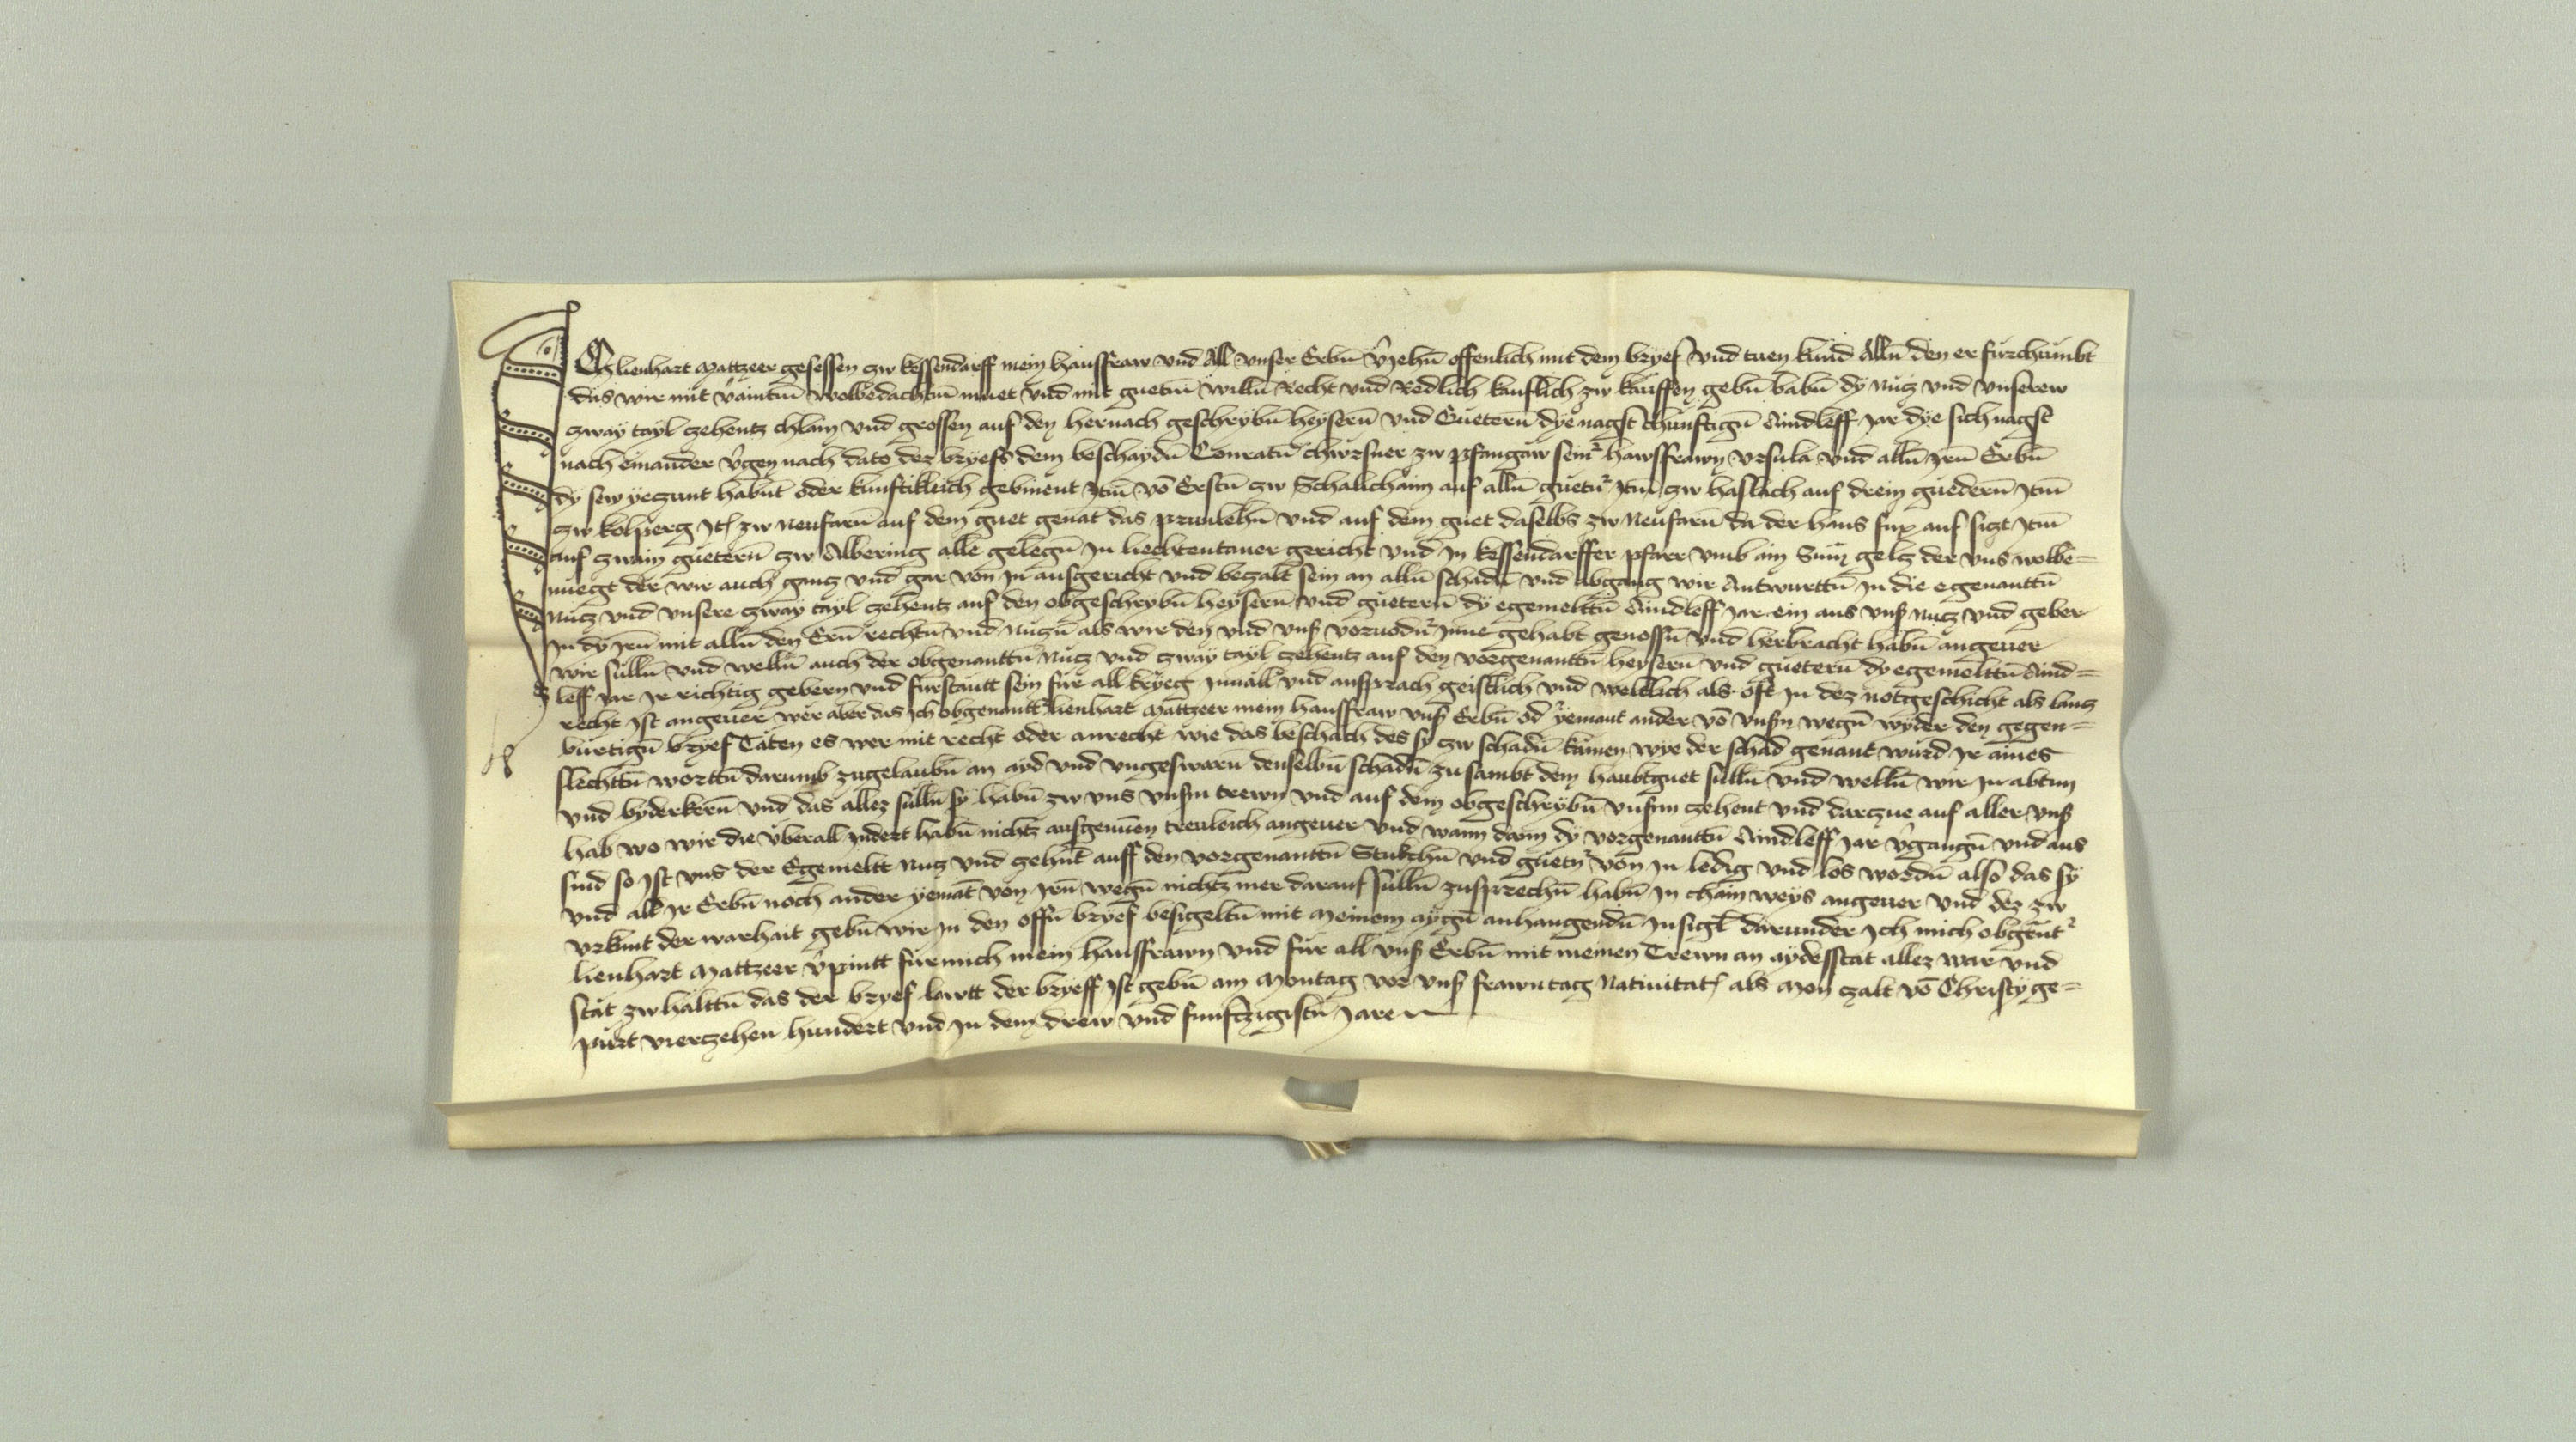 Ich lienhart Mattzeer gesessen zw kessendarff mein hausfraw vnd All vnser Erbn̄ v̄jehn̄ offenlich mit dem bryef vnd tuen kund Alln̄ den er fürchumbt
das wir mit v̓aintm̄ wolbedachtm̄ muet vnd mit guetm̄ willn̄ Recht vnd Redlich kauflich zw kauffen gebn̄ habn̄ dy nücz vnd vnserew
zway tayl zehentz chlain vnd grossen auf den hernach geschrybn̄ heysern̄ vnd Guetern̄ dye nagst chunftign̄ Aindleff Jar dye sich nagst
nach einander v̓gen nach dato dez bryefs dem beschaydn̄ Conratn̄ chürsner zw pfangaw seinr hawsfrawn vrsula vnd alln̄ Jrn̄ Erbn̄
dy sew yeczunt habn̄t oder kunftikleich gebinent Jtm̄ vō Erstn̄ zw Schalichaim auf alln̄ guetn̄ Jtm̄ zw haslach auf drein guedern̄ Jtm̄
zw kolperg Jt zw Neufarn̄ auf dem guet genāt das prunlehn̄ vnd auf dem guet daselbs zw Neufarn̄ da der hans fux auf siczt Jtm̄
auf zwain guetern̄ zw Albering alle gelegn̄ Jn liechtentaner gericht vnd Jn kessendarffer pfarr vmb ain Sum̄ geltz der vns wolbe=
nuegt der wir auch gancz vnd gar von Jn ausgericht vnd beczalt sein an alln̄ schadn̄ vnd abgang wir Antwurttn̄ Jn die egenanttn̄
Nücz vnd vnsere zway tayl zehentz auf den obgeschrybn̄ heysern̄ vnd guetern̄ dy egemelttn̄ Aindleff Jar ein aus vnß nucz vnd geber
Jn dy Jrn̄ mit alln̄ den Ern̄ rechtn̄ vnd nüczn̄ als wir den vnd vnß voruodn̄ Jnne gehabt genossn̄ vnd herbracht habn̄ angeuer
wir sülln̄ vnd welln̄ auch der obgenanttn̄ Nücz vnd zway tayl zehentz auf den vorgenanttn̄ heysern̄ vnd guetern̄ dy egemelttn̄ Aind=
leff Jar Jr richtig gebern vnd fürstantt sein für all kryeg Jnuäll vnd ansprach geistlich vnd weltlich als oft Jn dez notgeschicht als lancz
recht Jst angeuer wer aber das Jch obgenantt lienhart Mattzeer mein hausfraw vnß Erbn̄ od yemant ander vō vnsn̄ wegn̄ wyder den gegen=
bürtign̄ bryef Täten es wer mit recht oder anrecht wie das beschach des sy zw schadn̄ kämen wye der schad genant wurd Jr aines
slechttn̄ worttn̄ darumb zugelaubn̄ an ayd vnd vngesworn̄ denselbn̄ schadn̄ zu sambt dem haubtguet sülln̄ vnd welln̄ wir Jn abtun
vnd byderkern̄ vnd das allez sülln̄ sy habn̄ zw vns vnsn̄ trewn vnd auf dem obgeschrybn̄ vnsm̄ zehent vnd darczue auf aller vnß
hab wo wir die vberall Jndert habn̄ nichtz ausgenūen treuleich angeuer vnd wann dann dy vorgenanttn̄ Aindleff Jar v̓gangn̄ vnd aus
sind so Jst vns der Egemelt nucz vnd zehn̄t auff den vorgenanttn̄ Stukchn̄ vnd guetn̄ von Jn ledig vnd los wordn̄ also das sy
vnd all Jr Erbn̄ noch ander yemāt von Jrn̄ wegn̄ nichtz mer darauf sülln̄ zusprechn̄ habn̄ Jn chain weys angeuer vnd dez zw
vrkunt der warhait gebn̄ wir Jn den offn̄ bryef besigeltn̄ mit meinem aygn̄ anhangendn̄ Jnsigl darunder Jch mich obgent
lienhart Mattzeer v̓pintt für mich mein hausfrawn vnd für all vnß Erbn̄ mit meinen Trewn an aydesstat allez war vnd
stät zw halttn̄ das der bryef lautt der bryeff Jst gebn̄ am Montag vor vnß frawntag Natiuitat als Mon zalt vō Christy ge=
pürt vierczehen hundert vnd Jn dem drew vnd funftzigistn̄ Jare